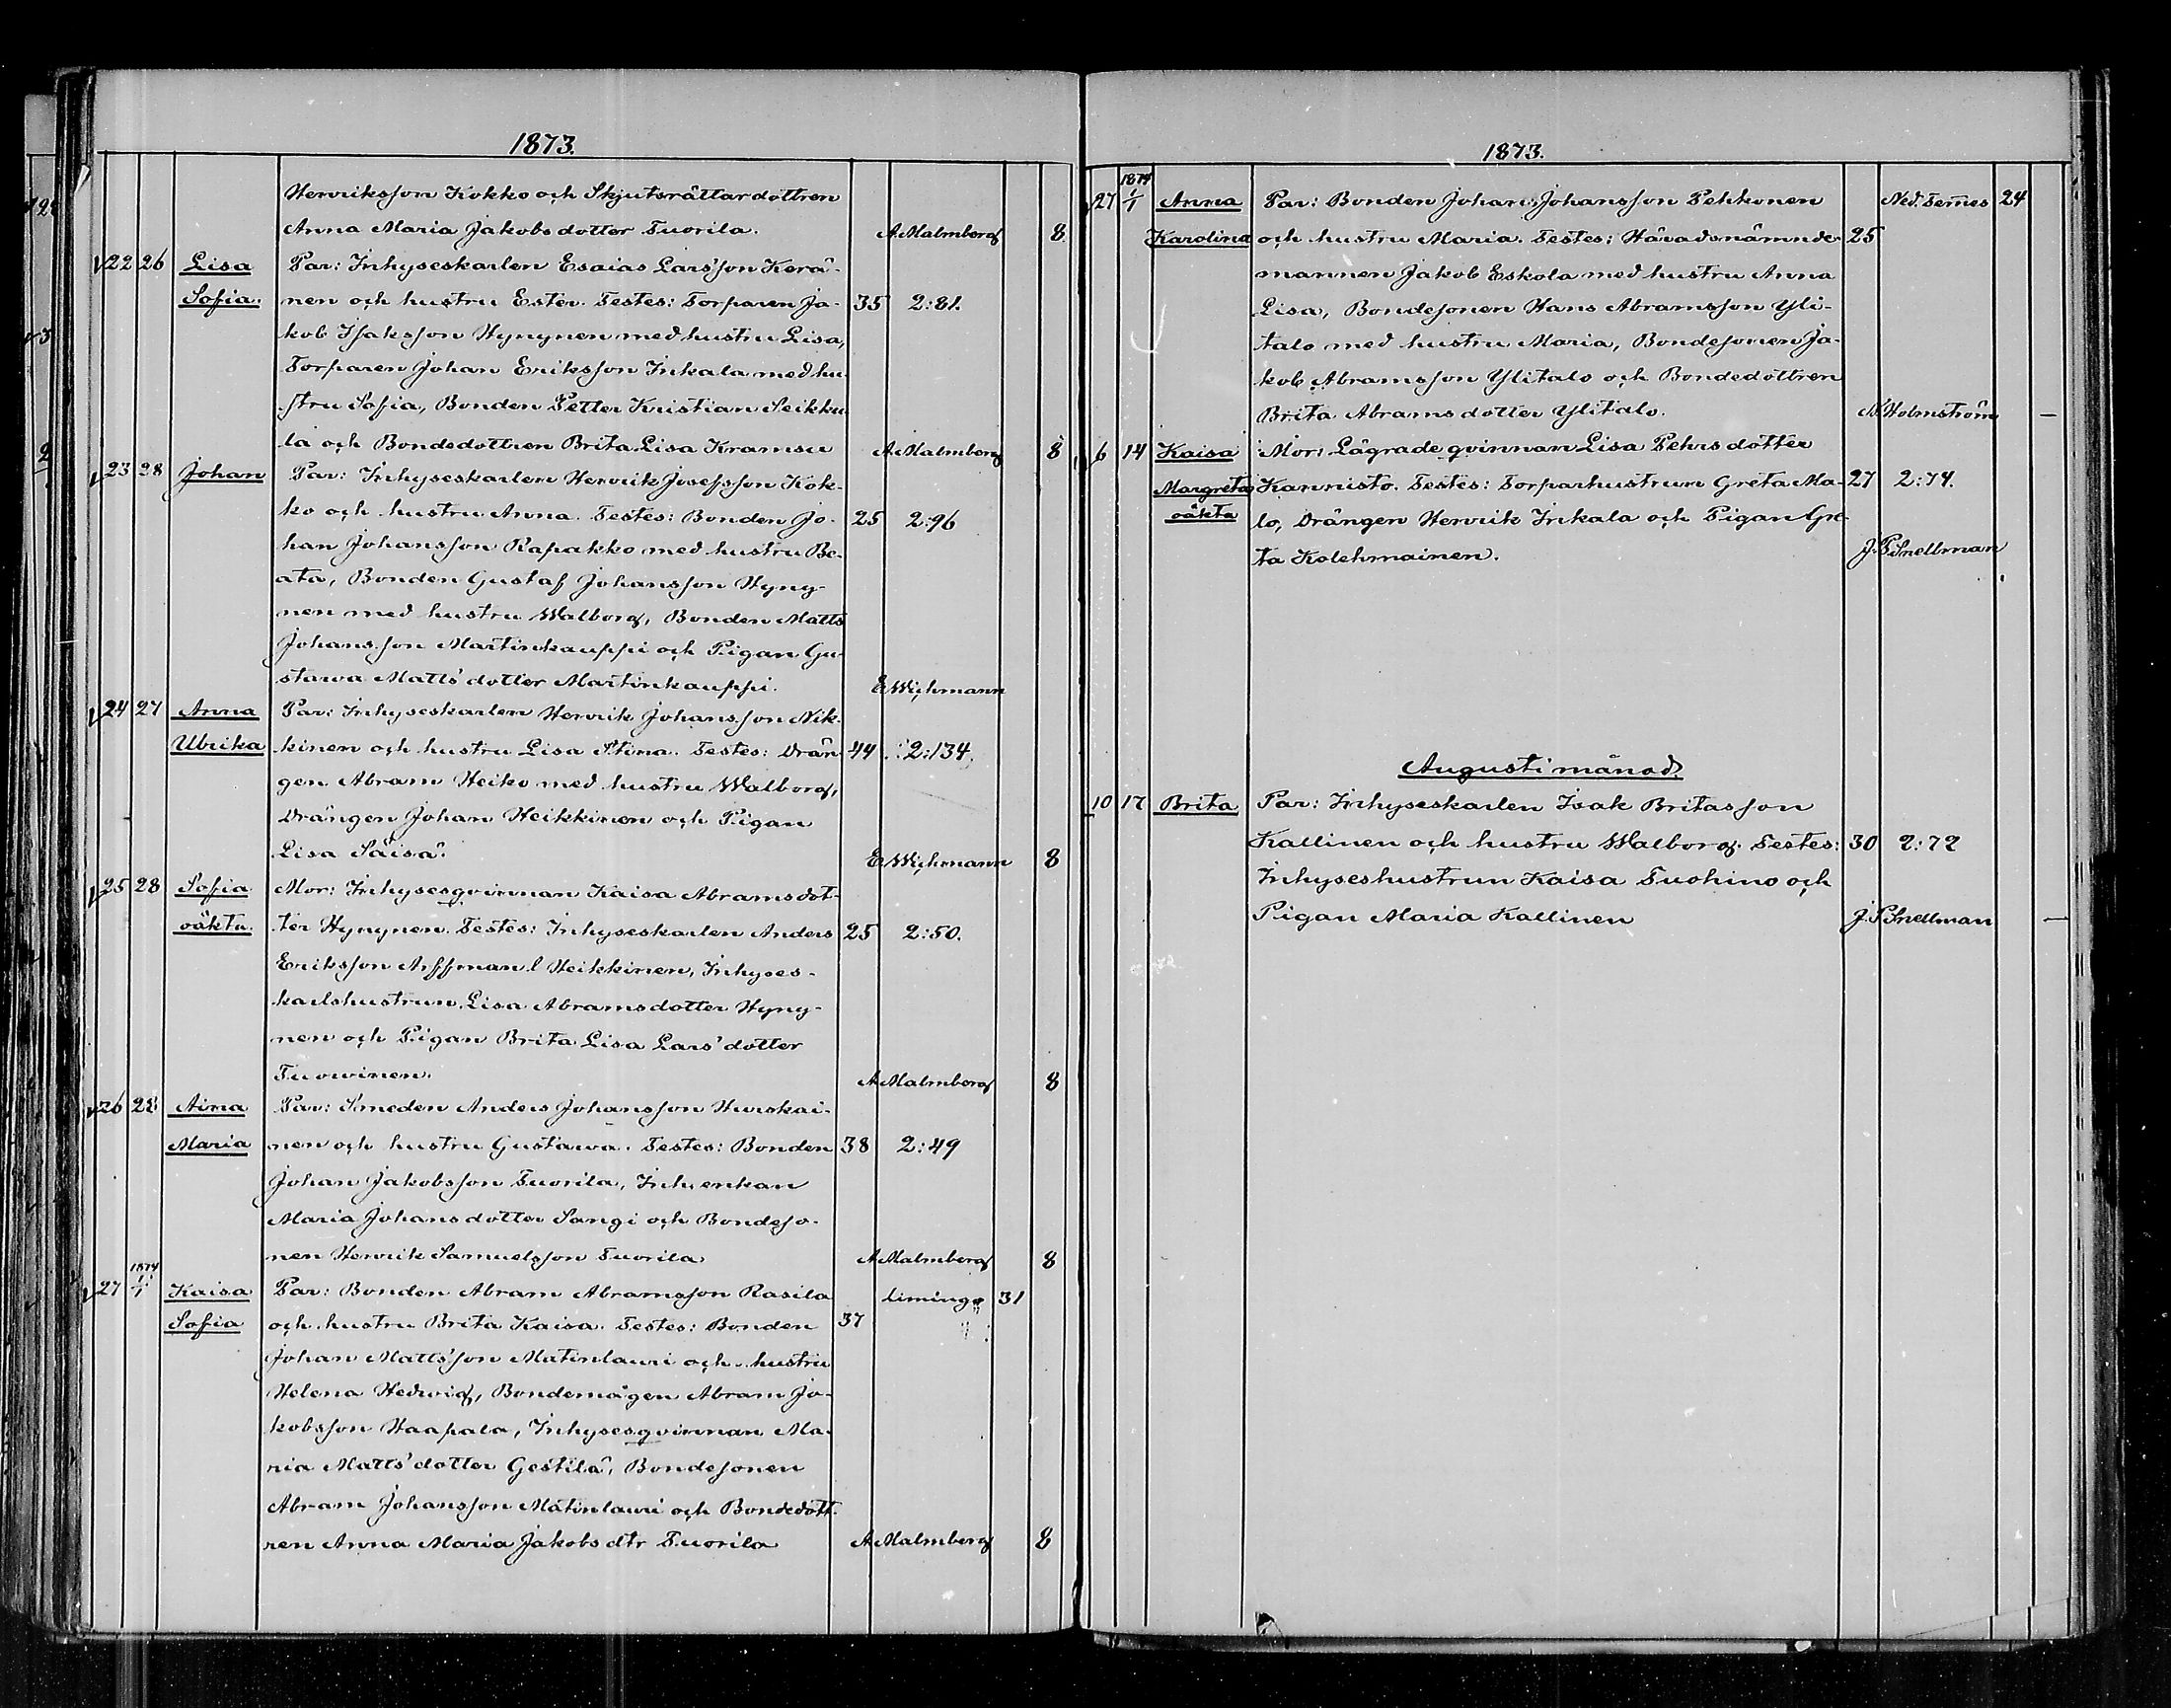 1873.
Henriksson Kokko och Skjutsrättardottren
Anna Maria Jakobsdotter Tuorila. A. Malmberg 8
22 26 Lisa Par: Inhyseskarlen Esaias Larsson Kerä-
Sofia. nen och hustru Ester. Testes: Torparen Ja- 35 2:81.
kob Isaksson Hynynen med hustru Lisa,
Torparen Johan Eriksson Inkala med hu-
stru Sofia, Bonden Petter Kristian Seikku
la och Bondedottren Brita Lisa Kramsu A. Malmberg 8
23 28 Johan Par: Inhyseskarlen Henrik Josefsson Kok-
ko och hustru Anna. Testes: Bonden Jo- 25 2:96
han Johansson Rapakko med hustru Be-
ata, Bonden Gustaf Johansson Hyny-
nen med hustru Walborg, Bonden Matts
Johansson Martinkauppi och Pigan Gu-
stawa Mattsdotter Martinkauppi. E. Wichmann
24 27 Anna Par: Inhyseskarlen Henrik Johansson Nik-
Ulrika kinen och hustru Lisa Stina. Testes: Drän 44 2:134.
gen Abram Heiko med hustru Walborg,
Drängen Johan Heikkinen och Pigan
Lisa Säisä. E. Wichmann 8
25 28 Sofia Mor: Inhysesqvinnan Kaisa Abramsdot-
oäkta. ter Hynynen. Testes: Inhyseskarlen Anders 25 2:50.
Eriksson Arffman l Heikkinen, Inhyses-
karlshustrun Lisa Abramsdotter Hyny-
nen och Pigan Brita Lisa Larsdotter
Tuovinen. A. Malmberg 8
26 28 Aina Par: Smeden Anders Johansson Hurskai-
Maria nen och hustru Gustawa. Testes: Bonden 38 2:49
Johan Jakobsson Tuorila, Inh. enkan
Maria Johansdotter Sangi och Bondeso-
nen Henrik Samuelsson Tuorila A. Malmberg 8
27 1874 1/1 Kaisa Par: Bonden Abram Abramsson Rasila Limingo 31
Sofia och hustru Brita Kaisa. Testes: Bonden 37
Johan Mattsson Matinlauri och hustru
Helena Hedwig, Bondemågen Abram Ja-
kobsson Haapala, Inhysesqvinnan Ma-
ria Mattsdotter Gestilä, Bondesonen
Abram Johansson Matinlauri och Bondedott-
ren Anna Maria Jakobsdtr Tuorila A. Malmberg 8
1873.
27 1874 1/1 Anna Par: Bonden Johan Johansson Pehkonen Ned. Temes 24
Karolina och hustru Maria. Testes: Häradsnämnde- 25
mannen Jakob Eskola med hustru Anna
Lisa, Bondesonen Hans Abramsson Yli-
talo med hustru Maria, Bondesonen Ja-
kob Abramsson Ylitalo och Bondedottren
Brita Abramsdotter Ylitalo. N. Holmström —
6 14 Kaisa Mor: Lägrade qvinnan Lisa Pehrsdotter
Margreta Kannisto. Testes: Torparhustrun Greta Ma- 27 2:74.
oäkta lo, Drängen Henrik Inkala och Pigan Gre-
ta Kolehmainen. J. P. Snellman
Augusti månad.
10 17 Brita Par: Inhyseskarlen Isak Britasson
Kallinen och hustru Walborg. Testes: 30 2:72
Inhyseshustrun Kaisa Tuohino och
Pigan Maria Kallinen J. P. Snellman —